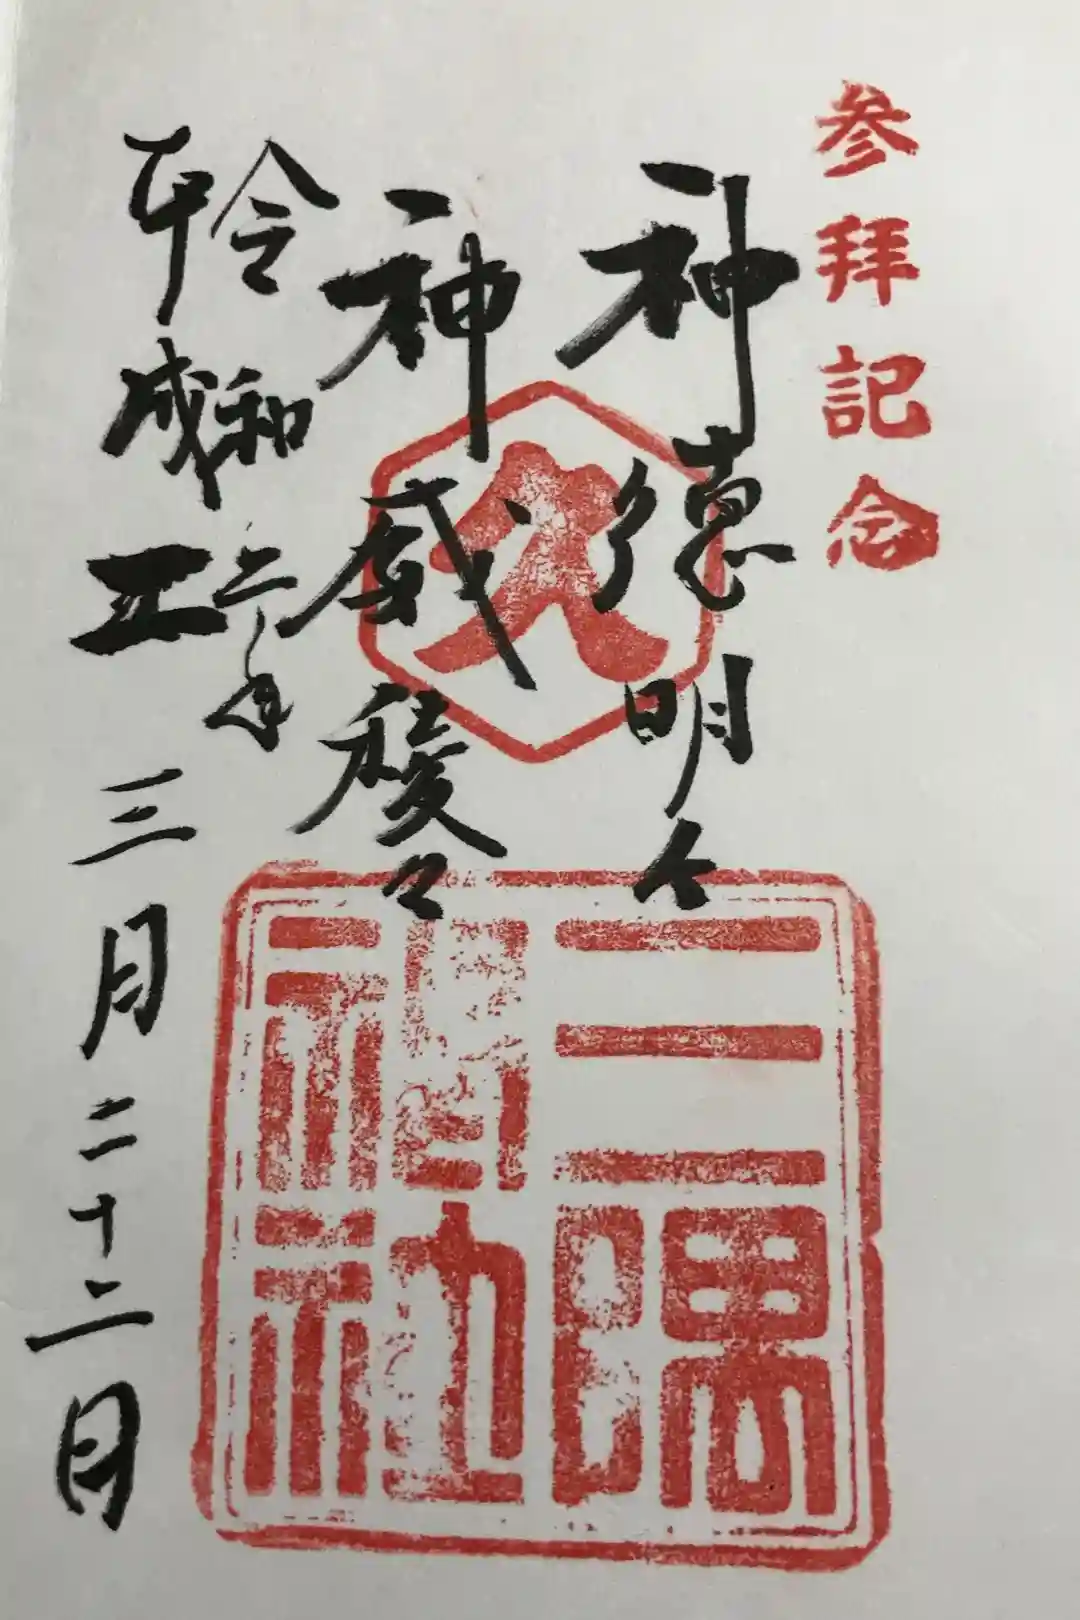 参拝記念
神徳明々
神威稜々
令和二年
平成
三月二十二日
久
三隅
神社